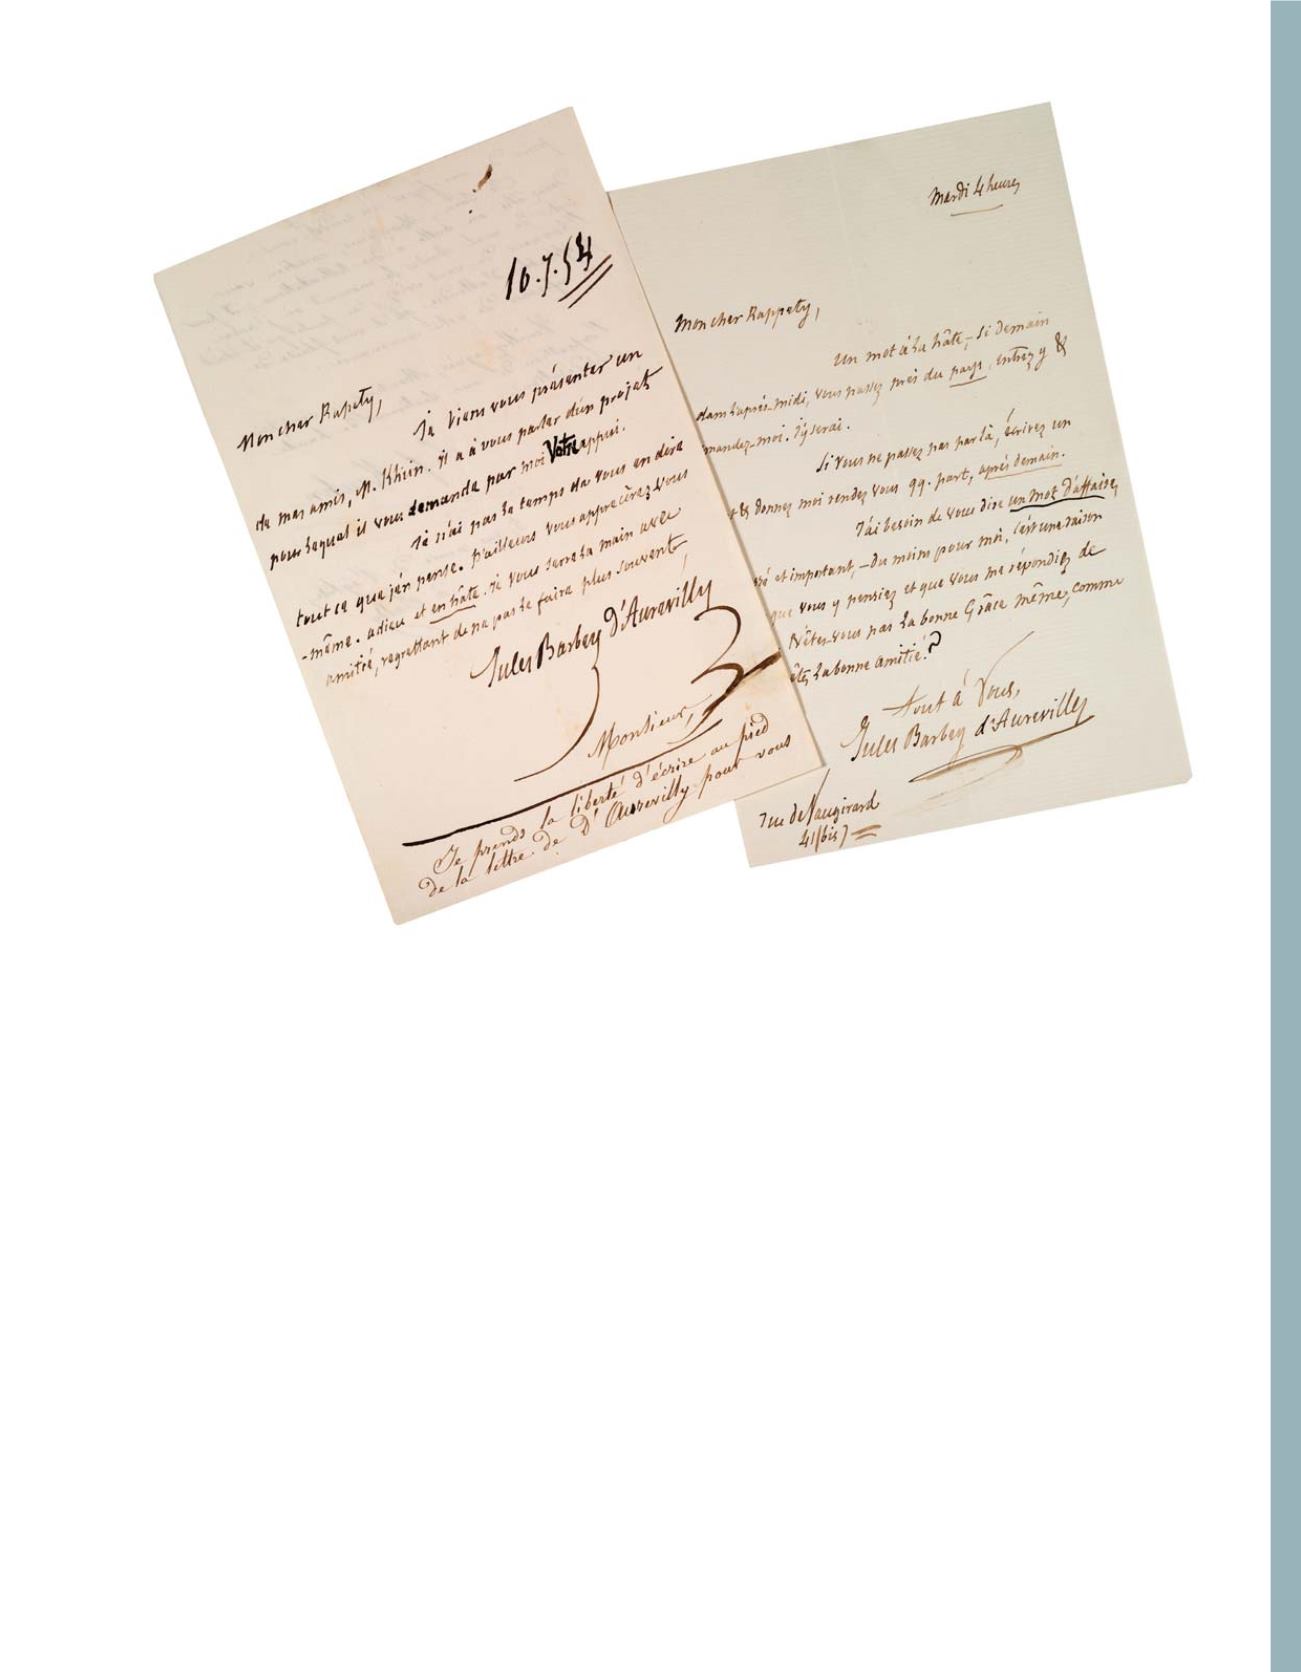 10.7.54
Mon cher Rapety,
Je viens vous présenter un
de mes amis, M. Khun. il a à vous parler d'un projet
pour lequel il vous demande par moi Votre appui.
Je n'ai pas le temps de vous en dire
tout ce que j'en pense. D'ailleurs vous apprécierez vous
-même. adieu et en hâte. Je vous serre la main avec
amitié, regrettant de ne pas le faire plus souvent,
Jules Barbey d'Aurevilly
Monsieur,
Je prends la liberté d'écrire au pied
de la lettre de D'Aurevilly pour vous
Mardi 4 heures
Mon cher Rappety,
Un mot à la hâte, – Si demain
dans l'après-midi, vous passez près du pays, entrez y &
mandez-moi. J'y serai.
Si vous ne passez pas par là, écrivez un
& donnez moi rendez vous qq. part, après demain.
J'ai besoin de vous dire un mot d'affaires,
et important, – du moins pour moi, c'est une raison
que vous y pensiez et que vous me répondiez de
N'êtes-vous pas la bonne Grâce même, comme
êtes la bonne amitié?
tout à Vous,
Jules Barbey d'Aurevilly
rue de Vaugirard
41 (bis)